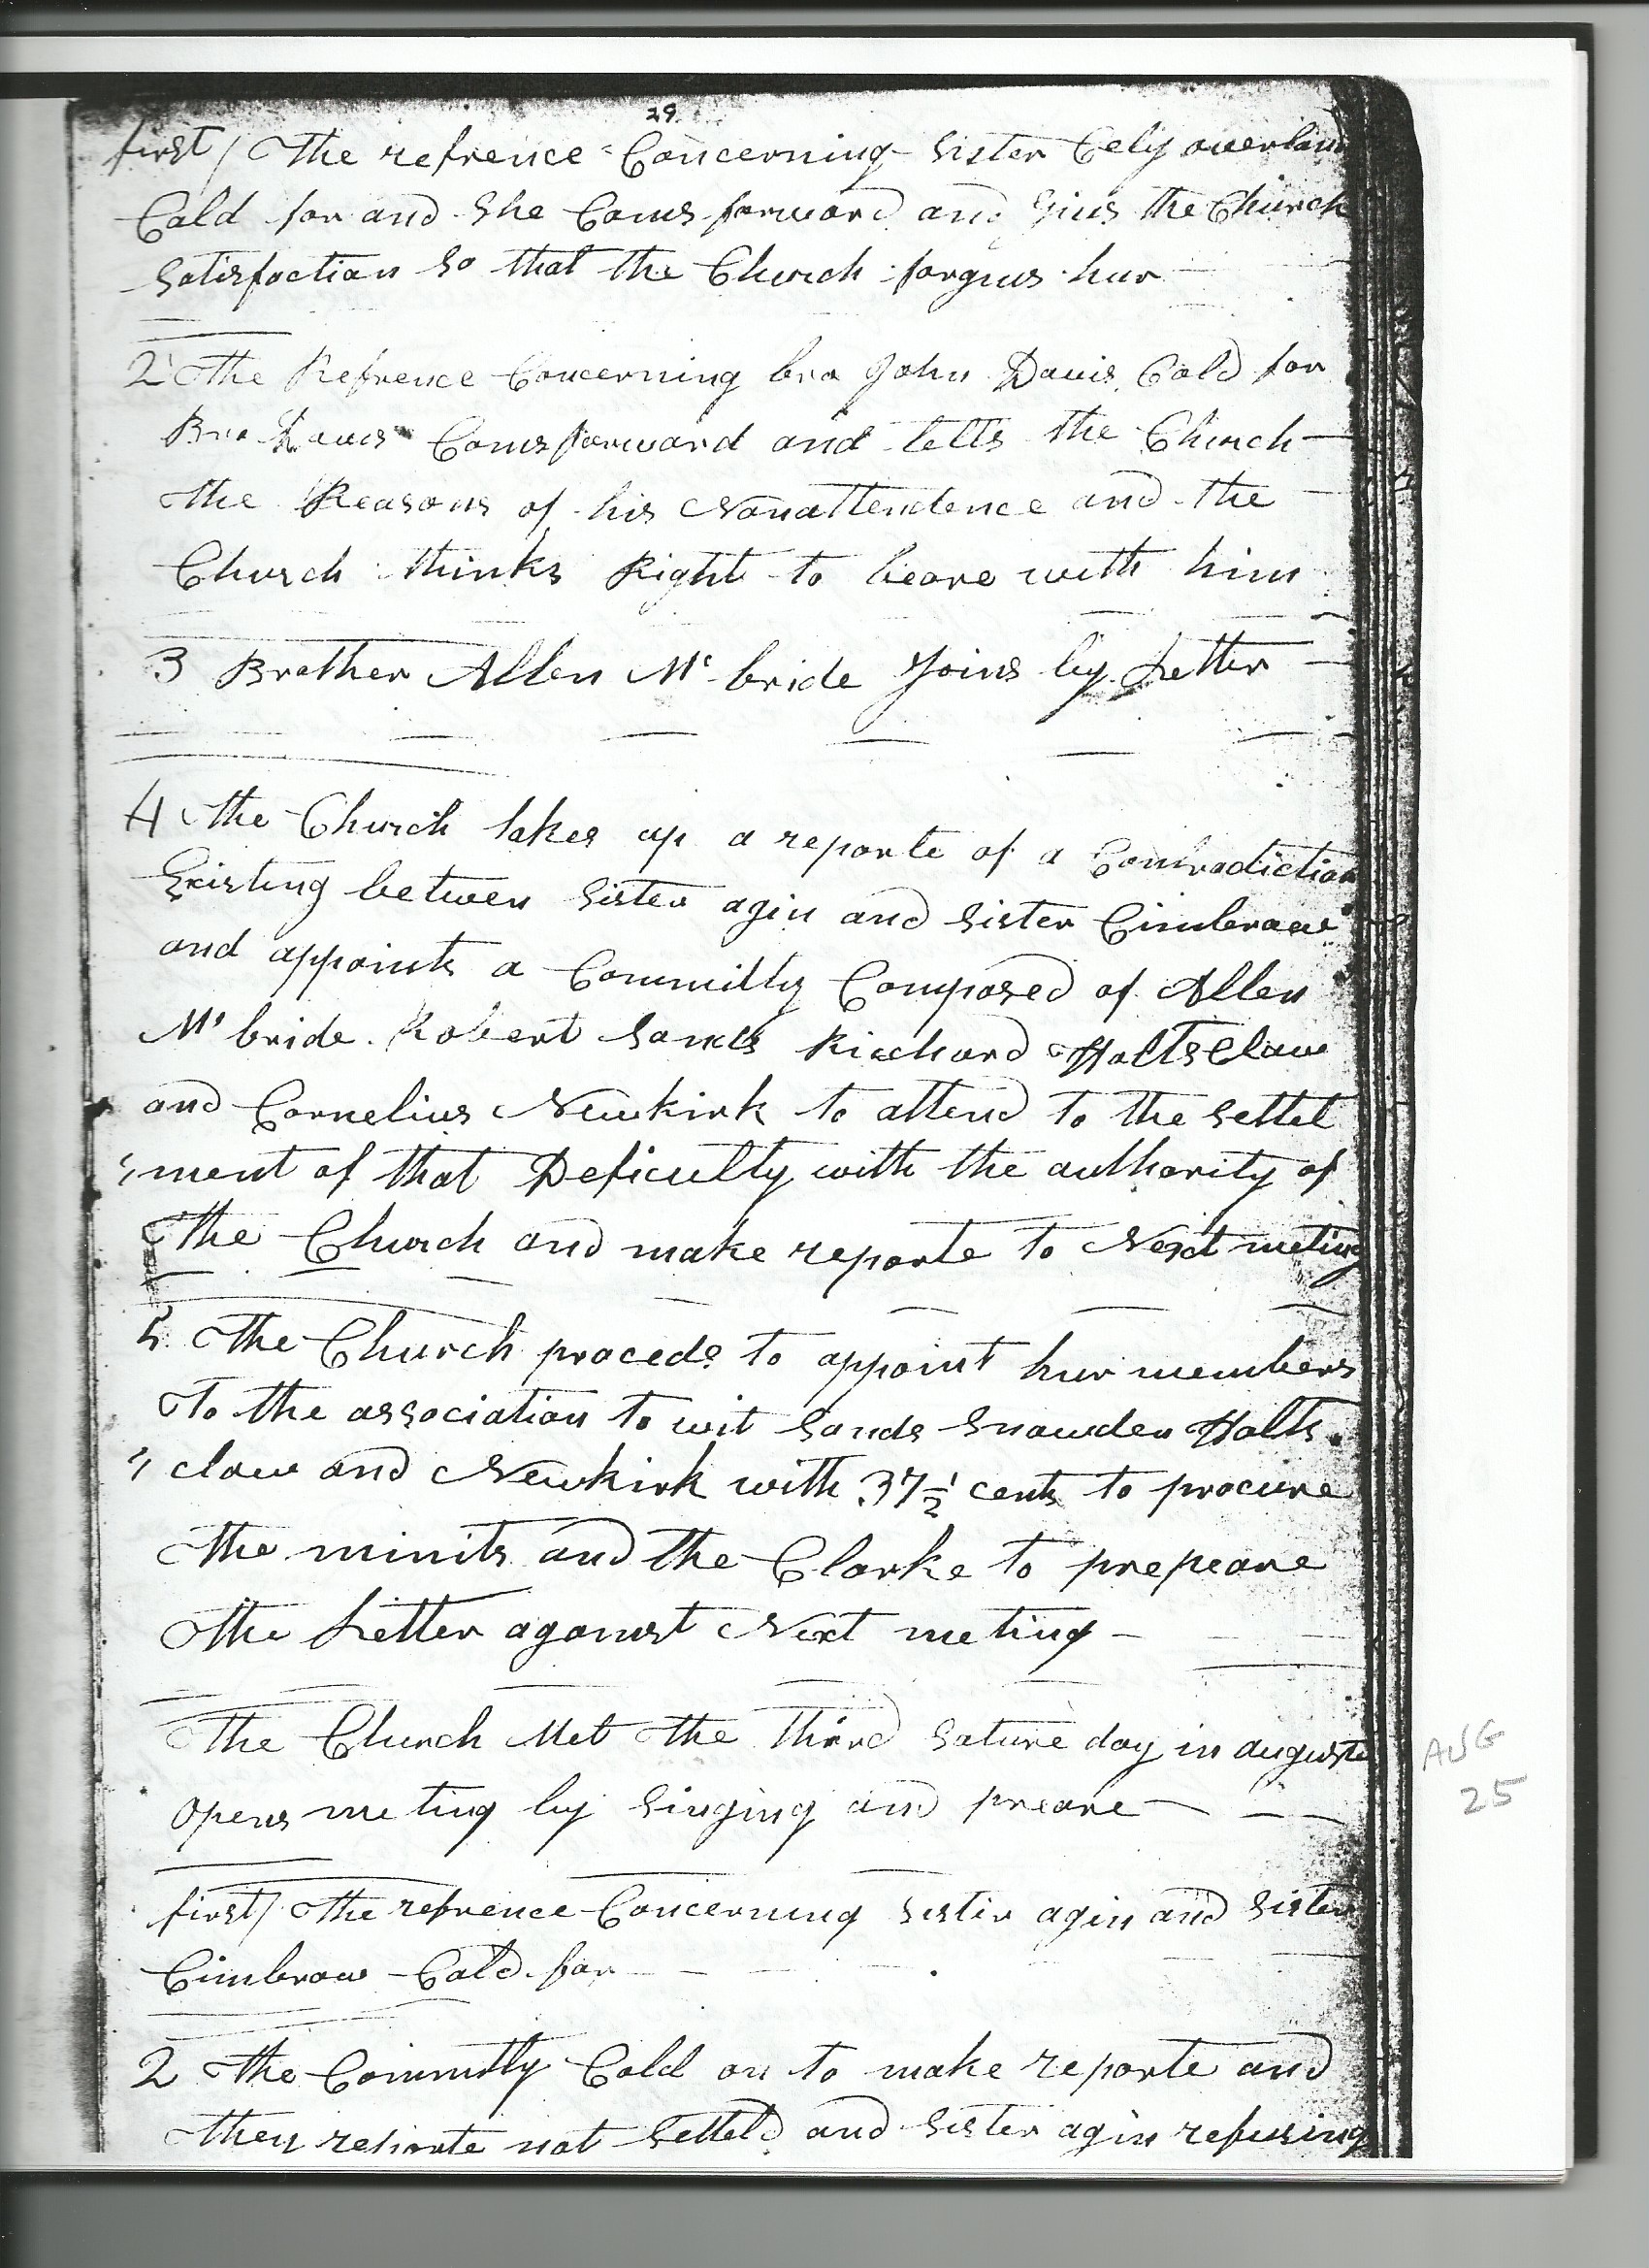 29
first / The refrence Concerning Sister Cely overlan
Cald for and She Coms forward and Givs the Church
Satisfaction So that the Church forgivs hur
2 The Refrence Concerning bro John Davis Cald for
Bro Davis Coms forward and tells the Church
the Reasons of his Nonattendence and the
Church thinks Right to beare with him
3 Brother Allen Mc bride Joins by Letter
4 the Church takes up a reporte of a Contradiction
Existing betwen Sister agin and Sister Cimbraw
and appoints a Committy Composed of Allen
Mc bride Robert Sands Richard HoltsClaw
and Cornelius Newkirk to attend to the settel
ment of that Deficulty with the authority of
the Church and make reporte to Next meting
5 The Church proceds to appoint hur members
To the association to wit Sands Snowden Holts
claw and Newkirk with 37 1/2 cents to procure
the minits and the Clarke to prepeare
the Letter against Next meting
The Church Met the Third Sature day in auguste
opens meting by Singing and preare
AUG
25
first / The refrence Concerning Sister agin and Sister
Cimbraw Cald for
2 The Committy Cald on to make reporte and
they reporte not Setteld and Sister agin refusing